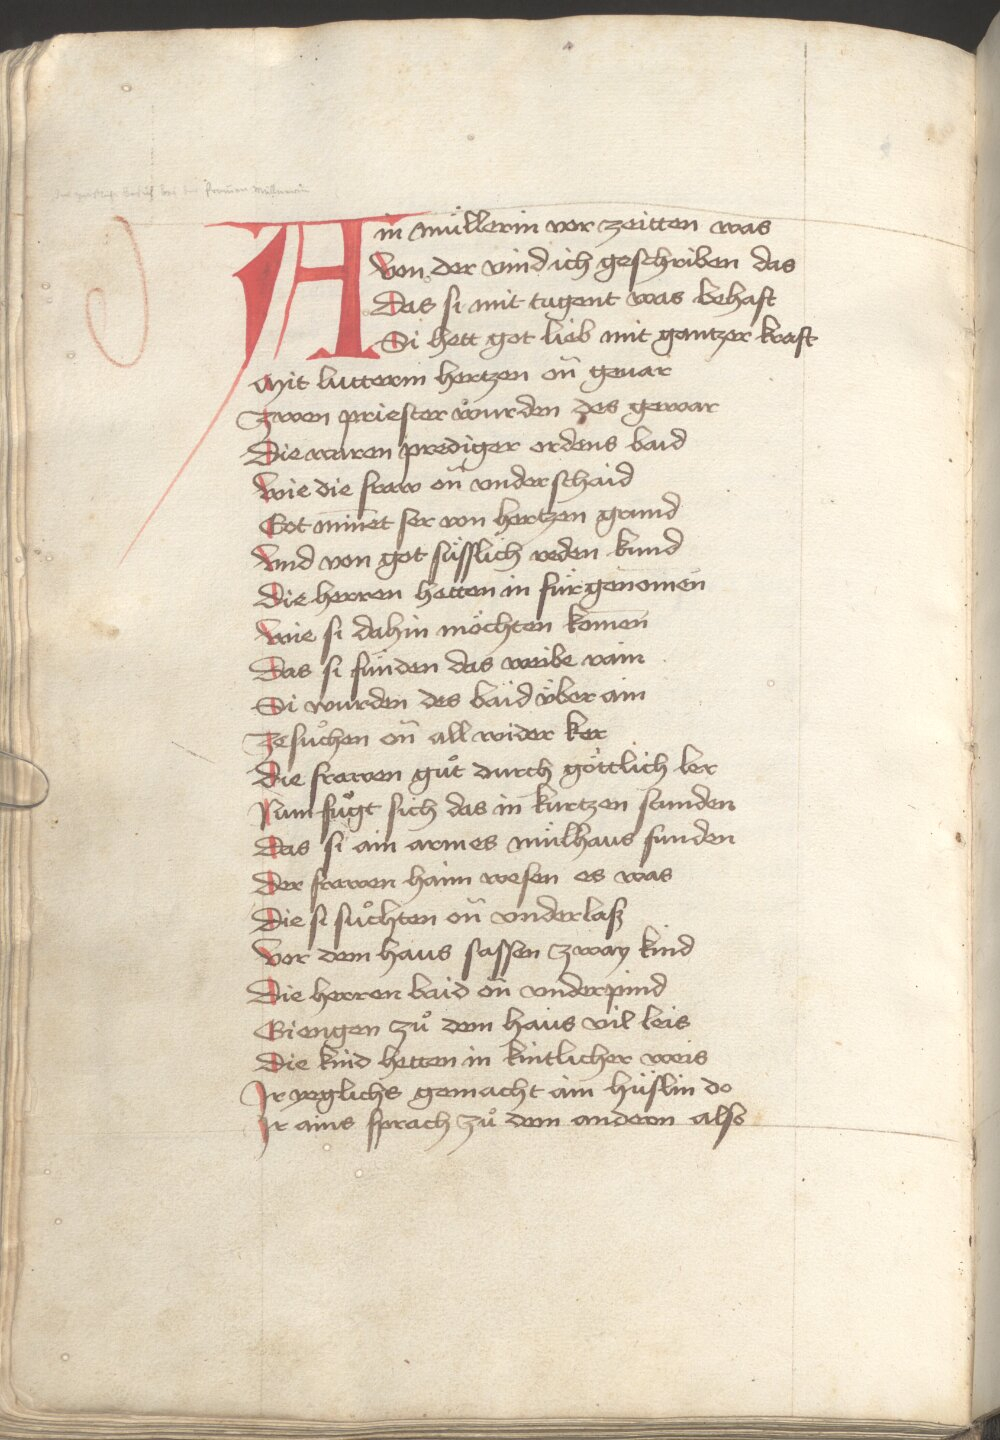 Ain müllerin vor zeitten was
Von der vind ich geschriben das
Das si mit tugent was behaft
Si hett got lieb mit gantzer kraft
Mit lutterm hertzen on̄ geuar
Zwen priester wurden des gewar
Die waren prediger ordens baid
Wie die fraw on̄ vnderschaid
Got min̄et ser von hertzen grund
Vnd von got süsslich reden kund
Die herren hetten in für genomen̄
Wie si dahin möchten komen̄
Das si fünden das weibe rain
Si wurden des baid über ain
Ze suͦchen on̄ all wider ker
Die frawen guͦt durch göttlich ler
Nun fuͤgt sich das in kurtzen stunden
Das si ain armes mülhaus funden
Der frawen haim wesen es was
Die si suͦchten on̄ vnderlasz
Vor dem haus sassen zway kind
Die herren baid on̄ vnderpind
Giengen zuͦ dem haus vil leis
Die kind hetten in kintlicher weis
Ir yeglichs gemacht ain hüslin do
Ir ains sprach zuͦ dem andern also